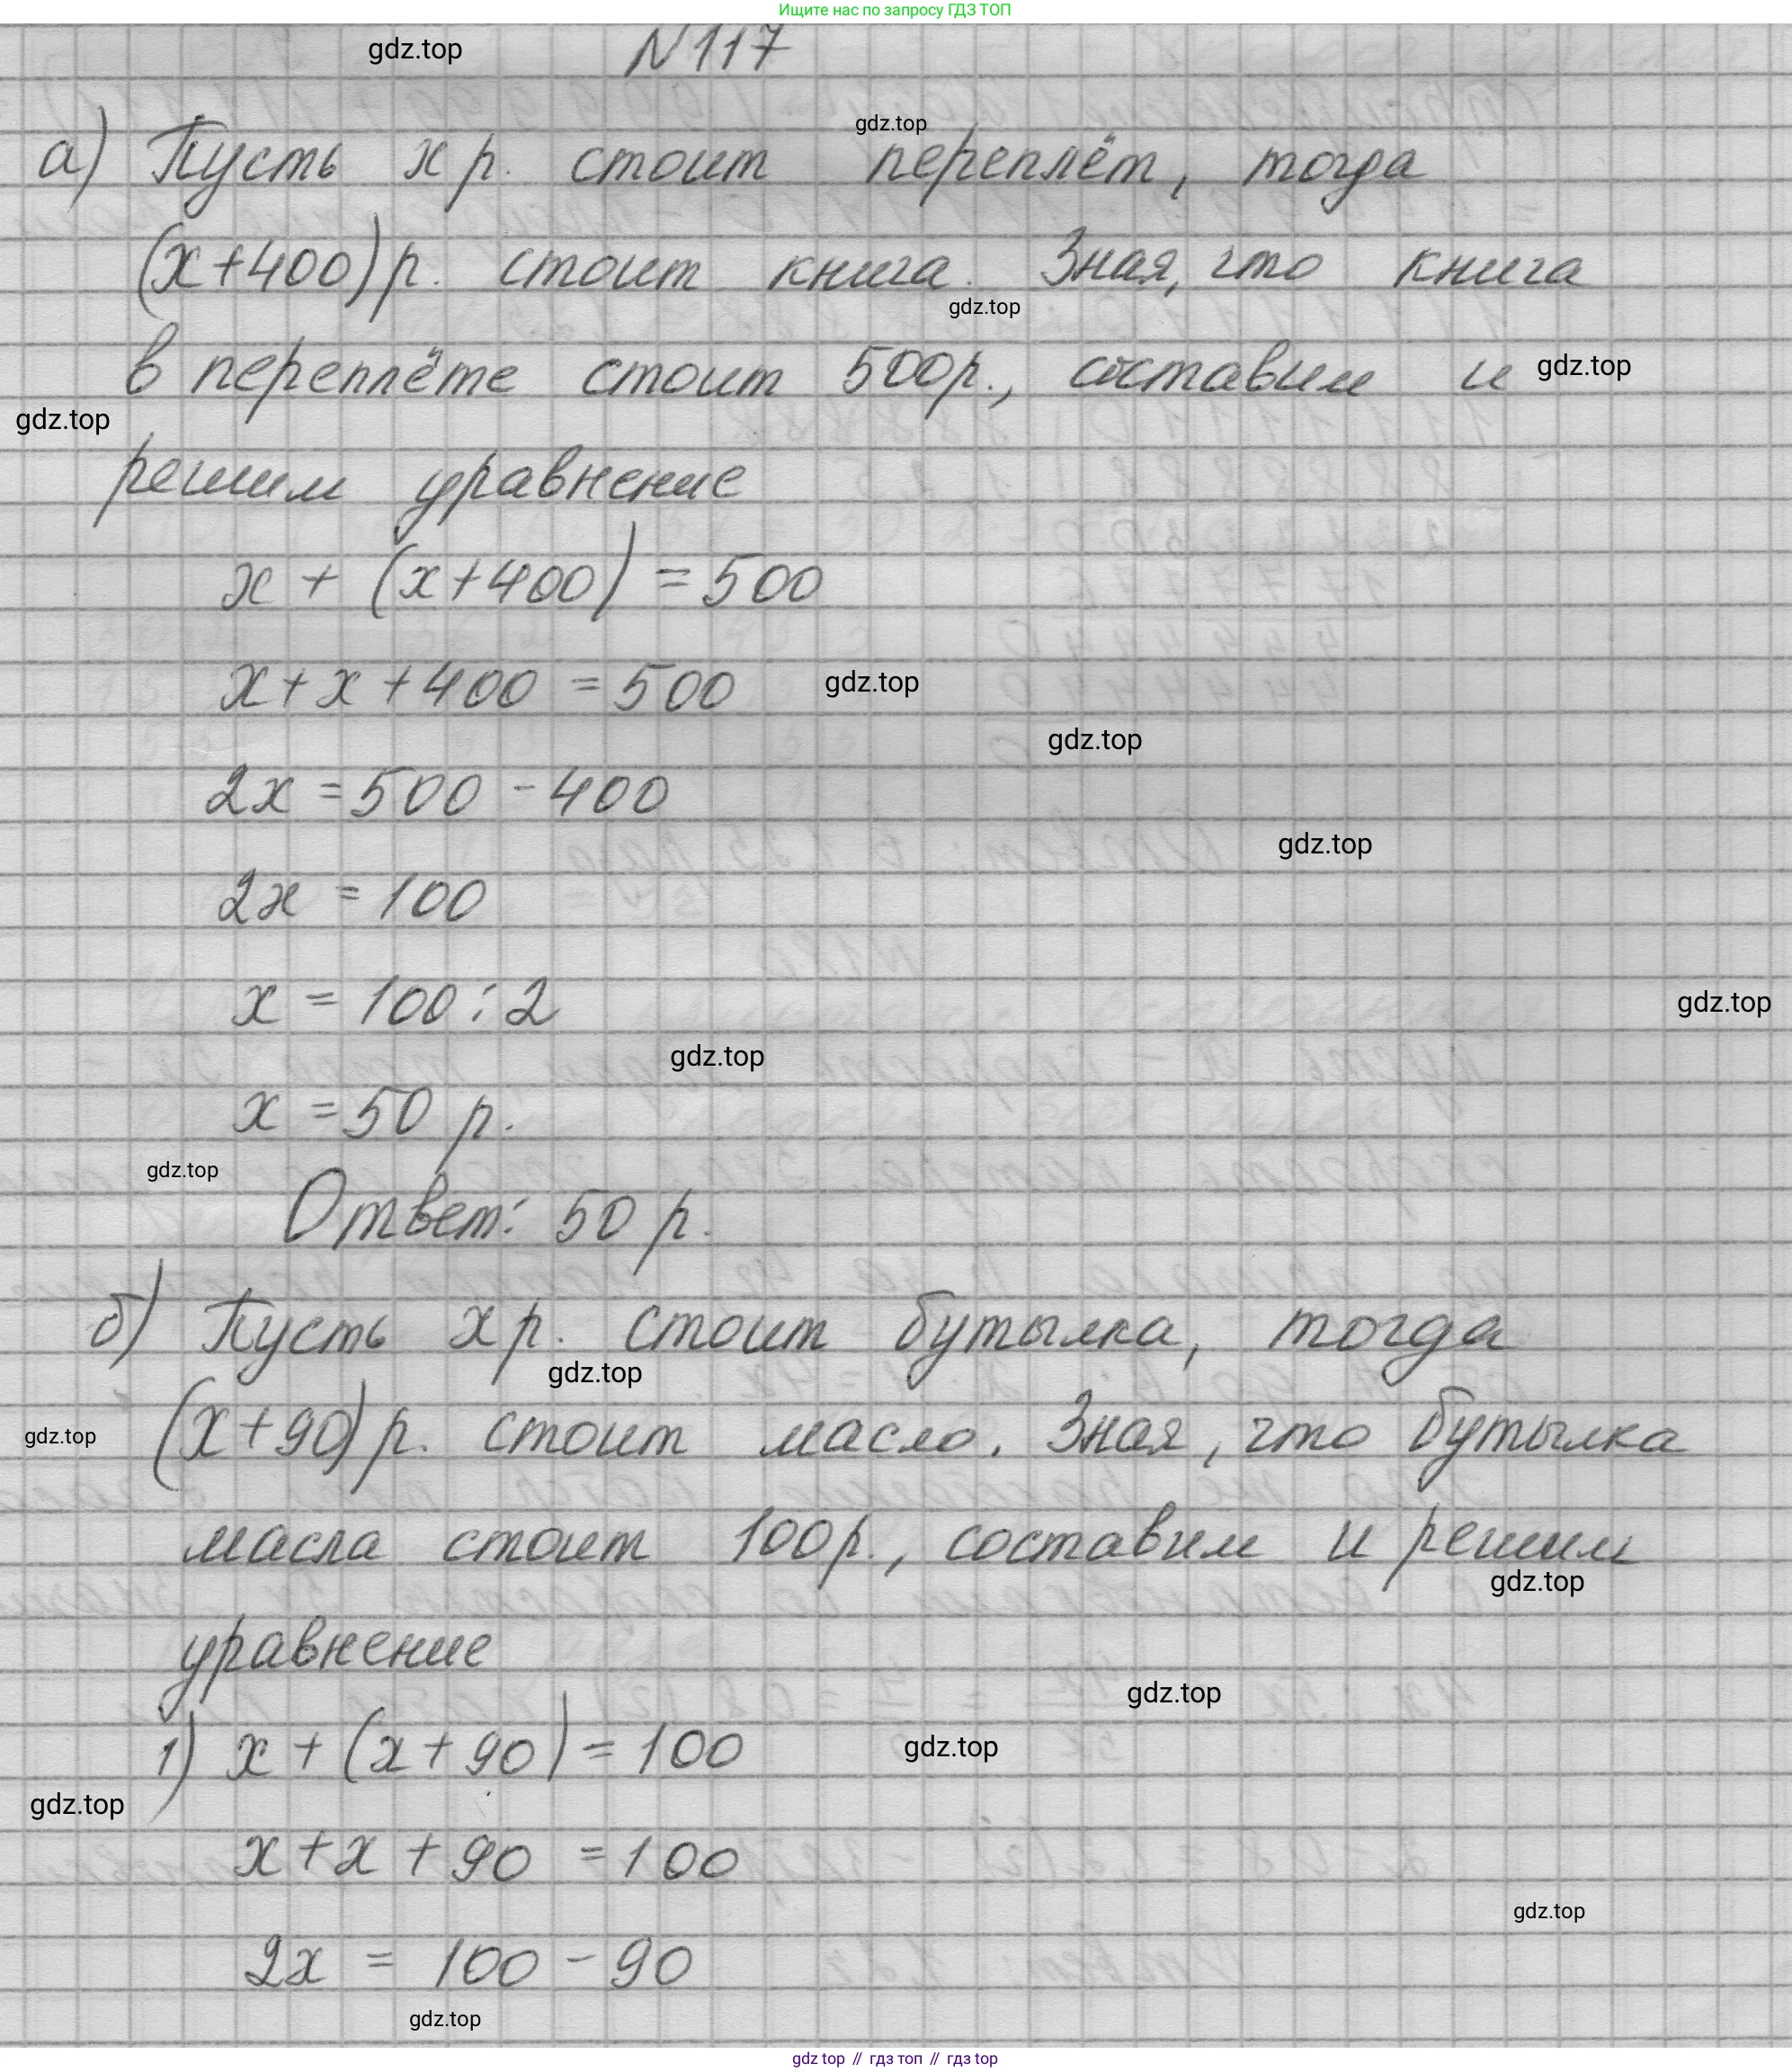 Ищите нас по запросу ГДЗ ТОП
gdz.top
N117
gdz.top
а) Пусть x р. стоит переплёт, тогда
(x+400) р. стоит книга. Зная, что книга
gdz.top
в переплёте стоит 500р., составим и
gdz.top
gdz.top
решим уравнение
x + (x+400) = 500
x+x+400 = 500
gdz.top
gdz.top
2x = 500 - 400
gdz.top
2x = 100
x = 100 : 2
gdz.top
gdz.top
x = 50 р.
gdz.top
Ответ: 50 р.
б) Пусть x р. стоит бутылка, тогда
gdz.top
(x+90) р. стоит масло. Зная, что бутылка
gdz.top
масла стоит 100р., составим и решим
gdz.top
уравнение
gdz.top
1) x + (x+90) = 100
gdz.top
gdz.top
x+x+90 = 100
gdz.top
2x = 100 - 90
gdz.top
gdz top // гдз топ // гдз top